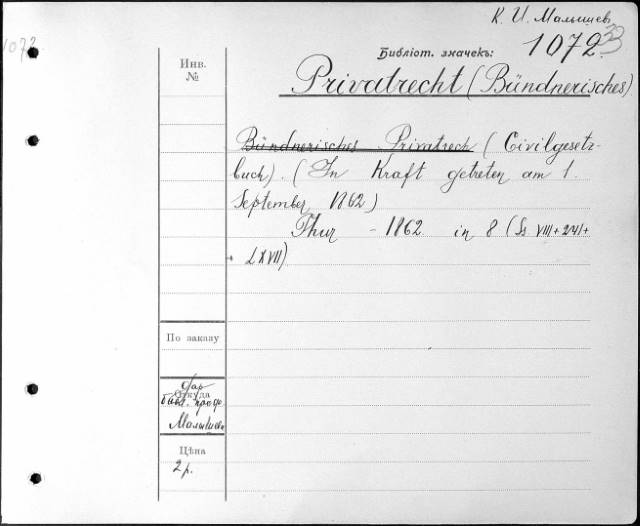 К. И. Малышев
1072
1072
Библіот. значекъ:
Инв.
№
Privatrecht (Bündnerisches)
Bündnerisches Privatrech (Civilgesetz-
buch). (In Kraft getreten am 1.
September 1862)
Thur - 1862 in 8 (Ss VIII + 241 +
+ LXVII)
По заказу
Дар
Откуда
библ. проф.
Малышева
Цѣна
2 р.